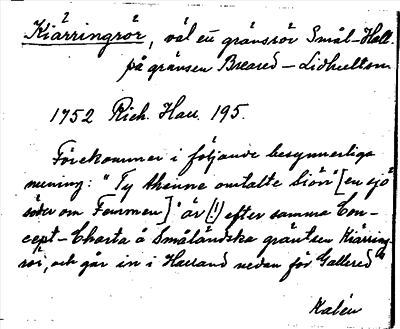 Kiärringrör, väl ett gränsrör Smål-Hall.
på gränsen Breared - Lidhultom
1752 Rich. Hall. 195.
Förekommer i följande besynnerliga
mening: "Ty thenne omtalte Siön" [en sjö
söder om Femmen] "är (!) efter samma Con-
cept-Charta å Småländska gräntsen Kiärring-
rör, och går in i Halland nedan för Gallered"
Kalén